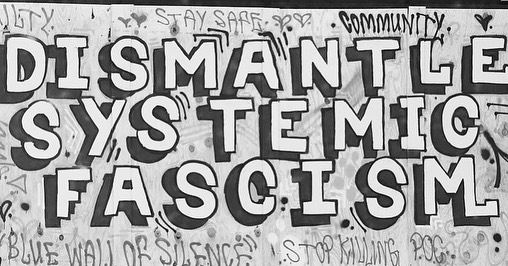 STAY SAFE COMMUNITY
DISMANTLE
SYSTEMIC
FASCISM
"BLUE WALL OF SILENCE" STOP KILLING POC